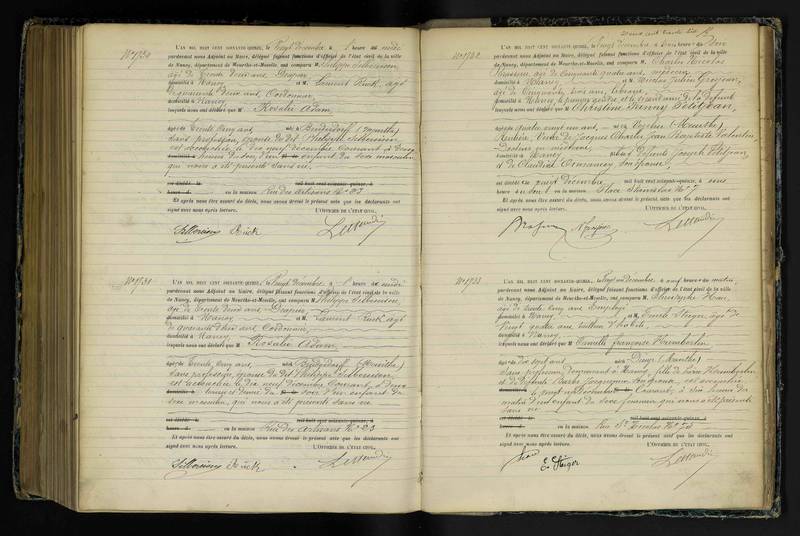 N° 1730
L'AN MIL HUIT CENT SOIXANTE-QUINZE, le Vingt Décembre à 1 heure de midi
pardevant nous Adjoint au Maire, délégué faisant fonctions d'officier de l'état civil de la ville
de Nancy, département de Meurthe-et-Moselle, ont comparu M. Philippe Silbereisen,
âgé de Trente deux ans,
domicilié à Nancy, et M. Laurent Rück, âgé
de quarante deux ans, Cordonnier,
domicilié à Nancy,
lesquels nous ont déclaré que M Rosalie Adam,
âgé de Trente Cinq ans, né à (Meurthe)
sans profession, épouse du dit Philippe Silbereisen,
est accouchée le dix neuf décembre Courant, à
heures du soir, d'un enfant du sexe masculin
qui nous a été présenté sans vie.
est décédé le mil huit cent soixante-quinze, à
heure d en la maison Rue des Artisans N° 23
Et après nous être assuré du décès, nous avons dressé le présent acte que les déclarants ont
signé avec nous après lecture. L'OFFICIER DE L'ÉTAT CIVIL,
Silbereisen Rück
N° 1731
L'AN MIL HUIT CENT SOIXANTE-QUINZE, le Vingt Décembre à 1 heure de midi
pardevant nous Adjoint au Maire, délégué faisant fonctions d'officier de l'état civil de la ville
de Nancy, département de Meurthe-et-Moselle, ont comparu M. Philippe Silbereisen,
âgé de Trente deux ans,
domicilié à Nancy, et M. Laurent Rück, âgé
de quarante deux ans, Cordonnier,
domicilié à Nancy,
lesquels nous ont déclaré que M Rosalie Adam,
âgé de Trente Cinq ans, né à (Meurthe)
sans profession, épouse du dit Philippe Silbereisen,
est accouchée le dix neuf décembre Courant, à
heures et demie du soir d'un enfant du
sexe masculin, qui nous a été présenté sans vie
est décédé le mil huit cent soixante-quinze, à
heure d en la maison Rue des Artisans N° 23
Et après nous être assuré du décès, nous avons dressé le présent acte que les déclarants ont
signé avec nous après lecture. L'OFFICIER DE L'ÉTAT CIVIL,
Silbereisen Rück
N° 1732
L'AN MIL HUIT CENT SOIXANTE-QUINZE, le Vingt Décembre à trois heures du Soir
pardevant nous Adjoint au Maire, délégué faisant fonctions d'officier de l'état civil de la ville
de Nancy, département de Meurthe-et-Moselle, ont comparu M. Charles Nicolas
âgé de Cinquante quatre ans,
domicilié à Nancy, et M. Nicolas Julien Grosjean,
âgé de Cinquante trois ans, libraire,
domicilié à Nancy, le premier gendre et le second ami de la défunte
lesquels nous ont déclaré que M Christine Fanny Petitjean,
âgé de quatre vingt un ans, né à Vézelise (Meurthe)
Rentière Veuve de Jacques Charles Jean Baptiste Valentin
Docteur en médecine,
domicilié à Nancy, fille de défunts Joseph Petitjean
et de Claudine son épouse,
est décédé le vingt décembre, mil huit cent soixante-quinze, à onze
heures du en la maison Place Stanislas N° 7
Et après nous être assuré du décès, nous avons dressé le présent acte que les déclarants ont
signé avec nous après lecture. L'OFFICIER DE L'ÉTAT CIVIL,
N° 1733
L'AN MIL HUIT CENT SOIXANTE-QUINZE, le Vingt un Décembre à neuf heures du matin,
pardevant nous Adjoint au Maire, délégué faisant fonctions d'officier de l'état civil de la ville
de Nancy, département de Meurthe-et-Moselle, ont comparu M. Christophe
âgé de trente Cinq ans Employé
domicilié à Nancy, et M. Emile Steiger, âgé de
Vingt quatre ans, tailleur d'habits,
domicilié à Nancy,
lesquels nous ont déclaré que M Camille Françoise
âgé de dix sept ans, né à Dieuze (Meurthe)
sans profession, demeurant à Nancy, fille de
et de défunte Barbe son épouse, est accouchée
le vingt Décembre Courant, à
matin d'un enfant du sexe féminin qui nous a été présenté
sans vie
est décédé le mil huit cent soixante-quinze, à
heure d en la maison Rue St Nicolas N° 50
Et après nous être assuré du décès, nous avons dressé le présent acte que les déclarants ont
signé avec nous après lecture. L'OFFICIER DE L'ÉTAT CIVIL,
E. Steiger